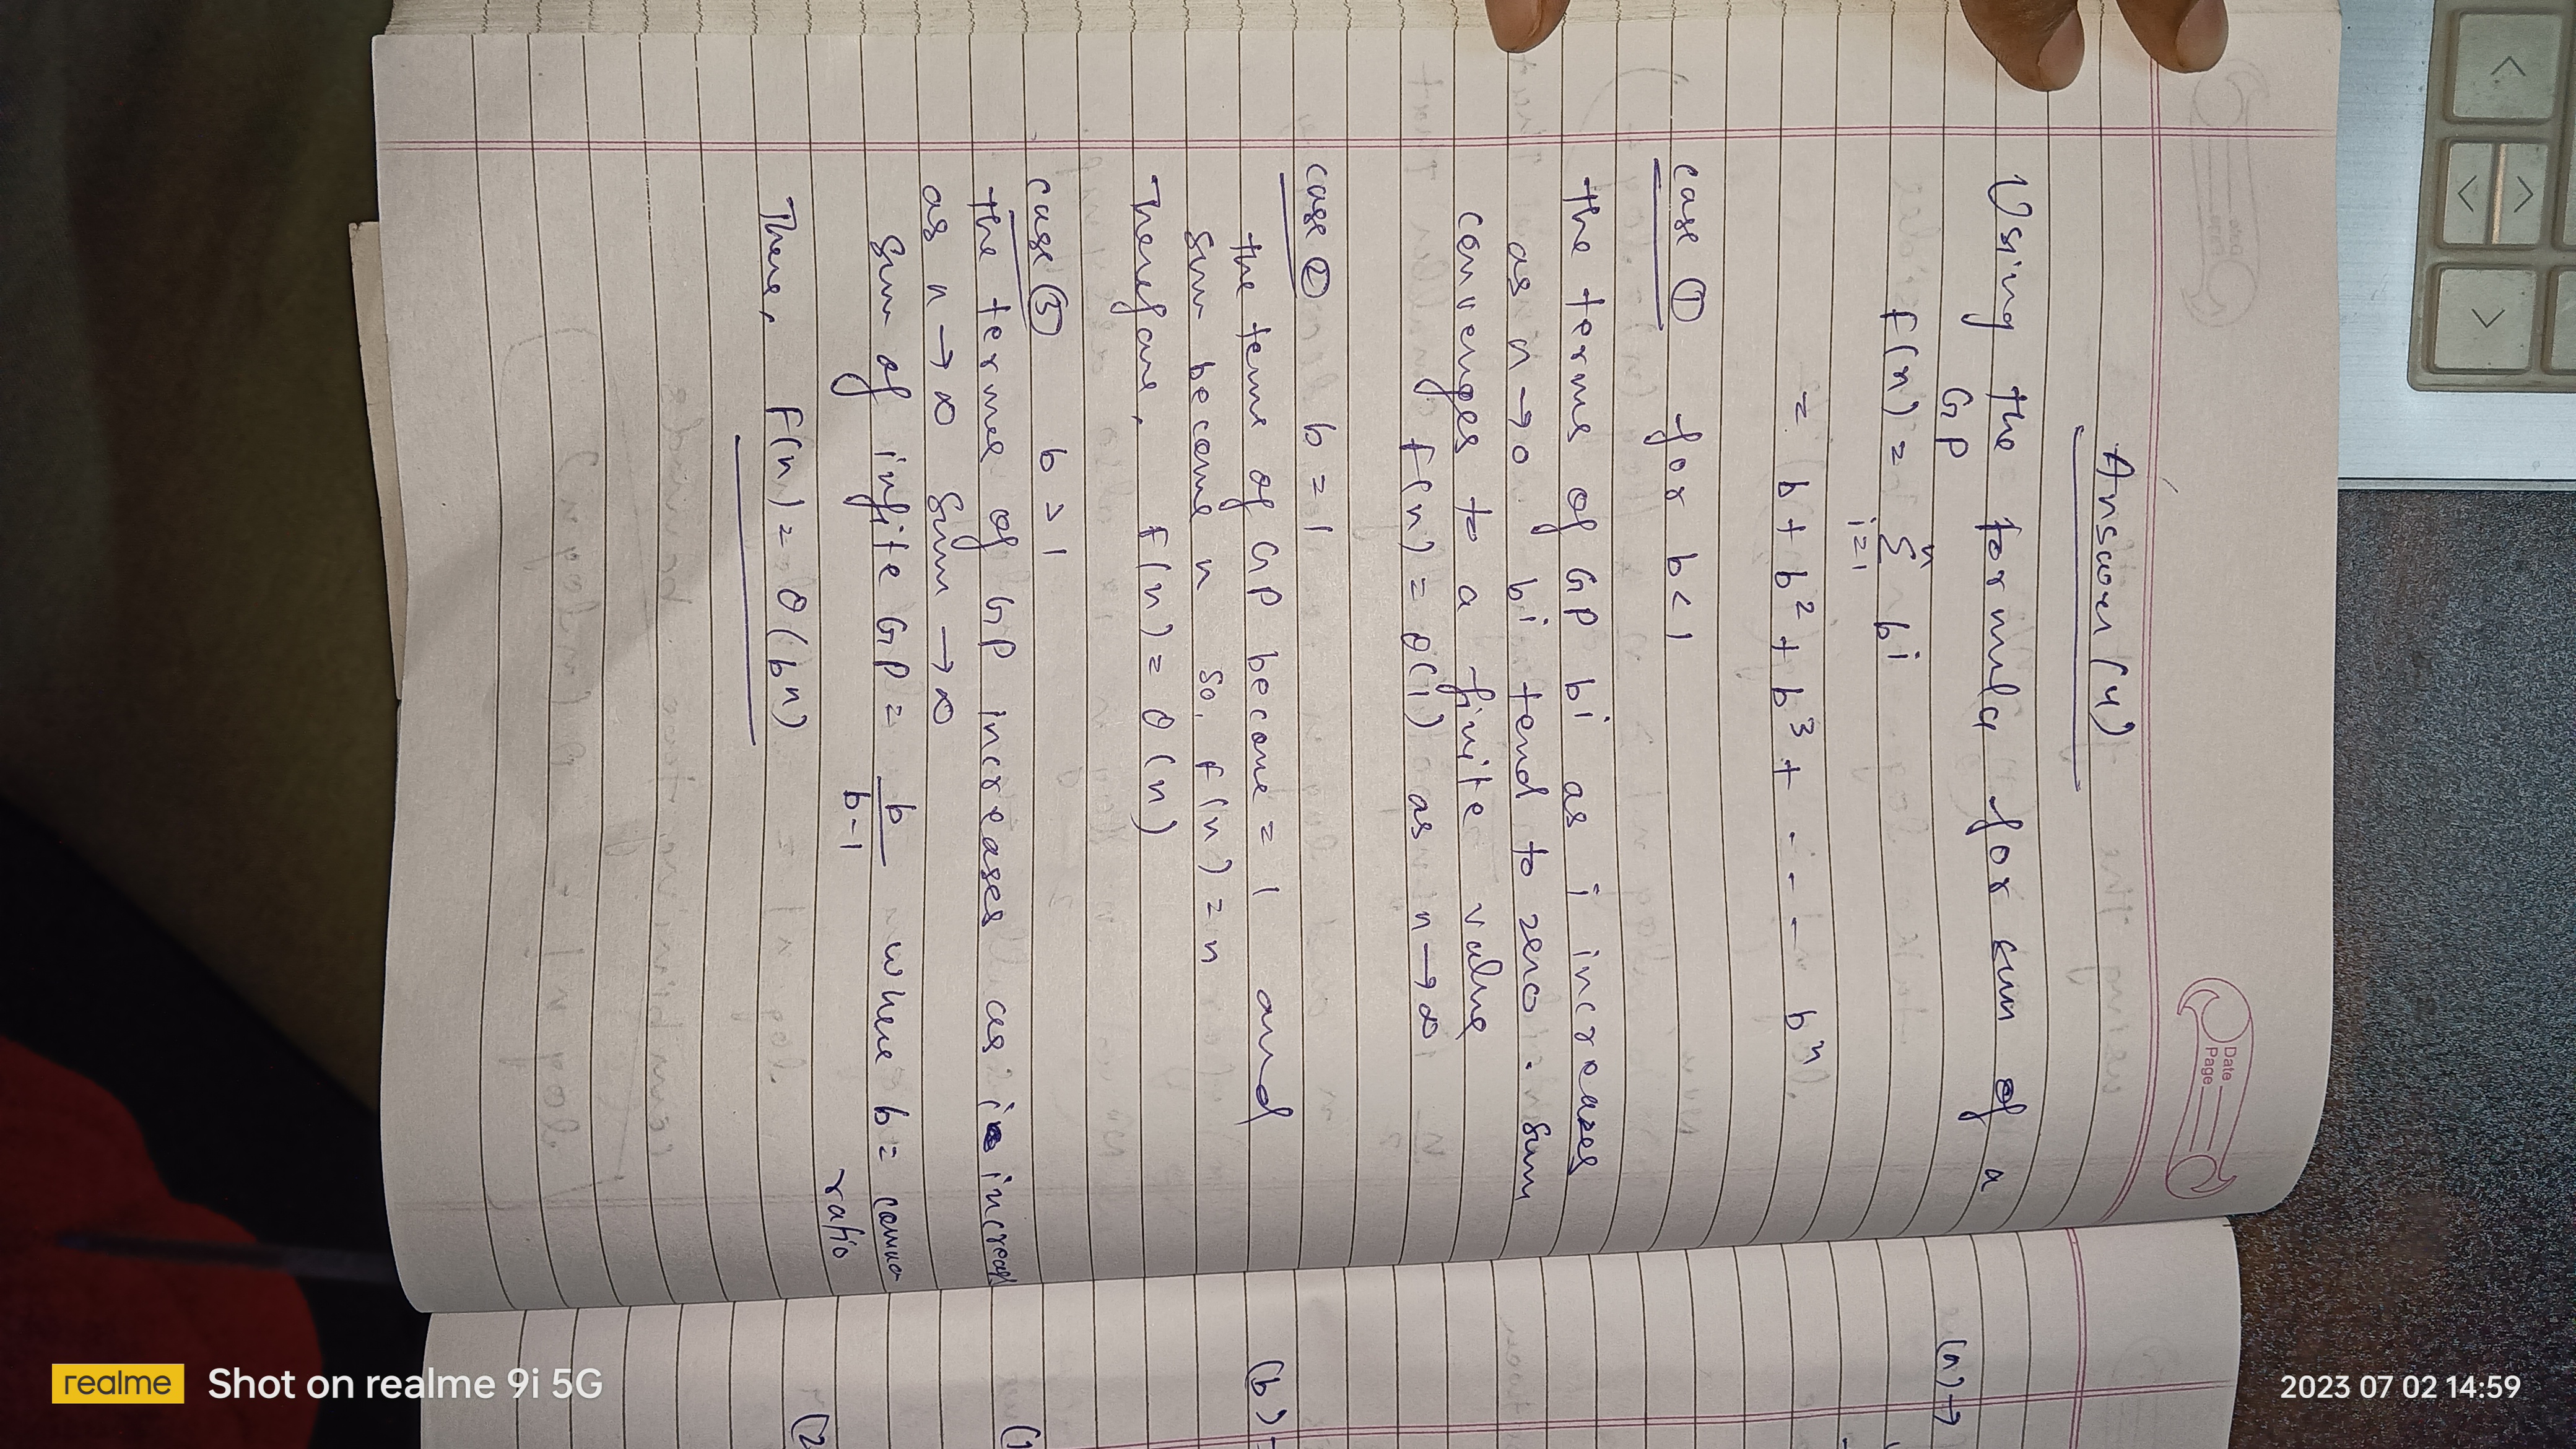 Date
Page
Answer (4)
Using the formula for sum of a
GP
f(n) = n Σ i=1 b^i
= b + b^2 + b^3 + - - - - b^n
case ① for b < 1
the terms of GP b^i as i increases
as n → 0 b^i tend to zero. Sum
converges to a finite value
f(n) = θ(1) as n → ∞
case ② b = 1
the terms of GP become = 1 and
sum become n so, f(n) = n
Therefore, f(n) = θ(n)
case ③ b > 1
the termes of GP increases as i increas
as n → ∞ Sum → ∞
Sum of infite GP = b / b-1 where b = common
ratio
There, F(n) = θ(b^n)
(a) →
(b)
(1
(2
2023 07 02 14:59
realme Shot on realme 9i 5G